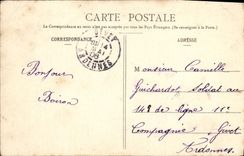 CARTE POSTALE
La Correspondance au recto n'est pas acceptée par tous les Pays Étrangers. (Se renseigner à la Poste.)
CORRESPONDANCE
ADRESSE
GIVET
ARDENNES
Bonjour
Boiron
Monsieur Camille
Guichardot Soldat au
148 de ligne 11e
Compagnie Givet
Ardennes